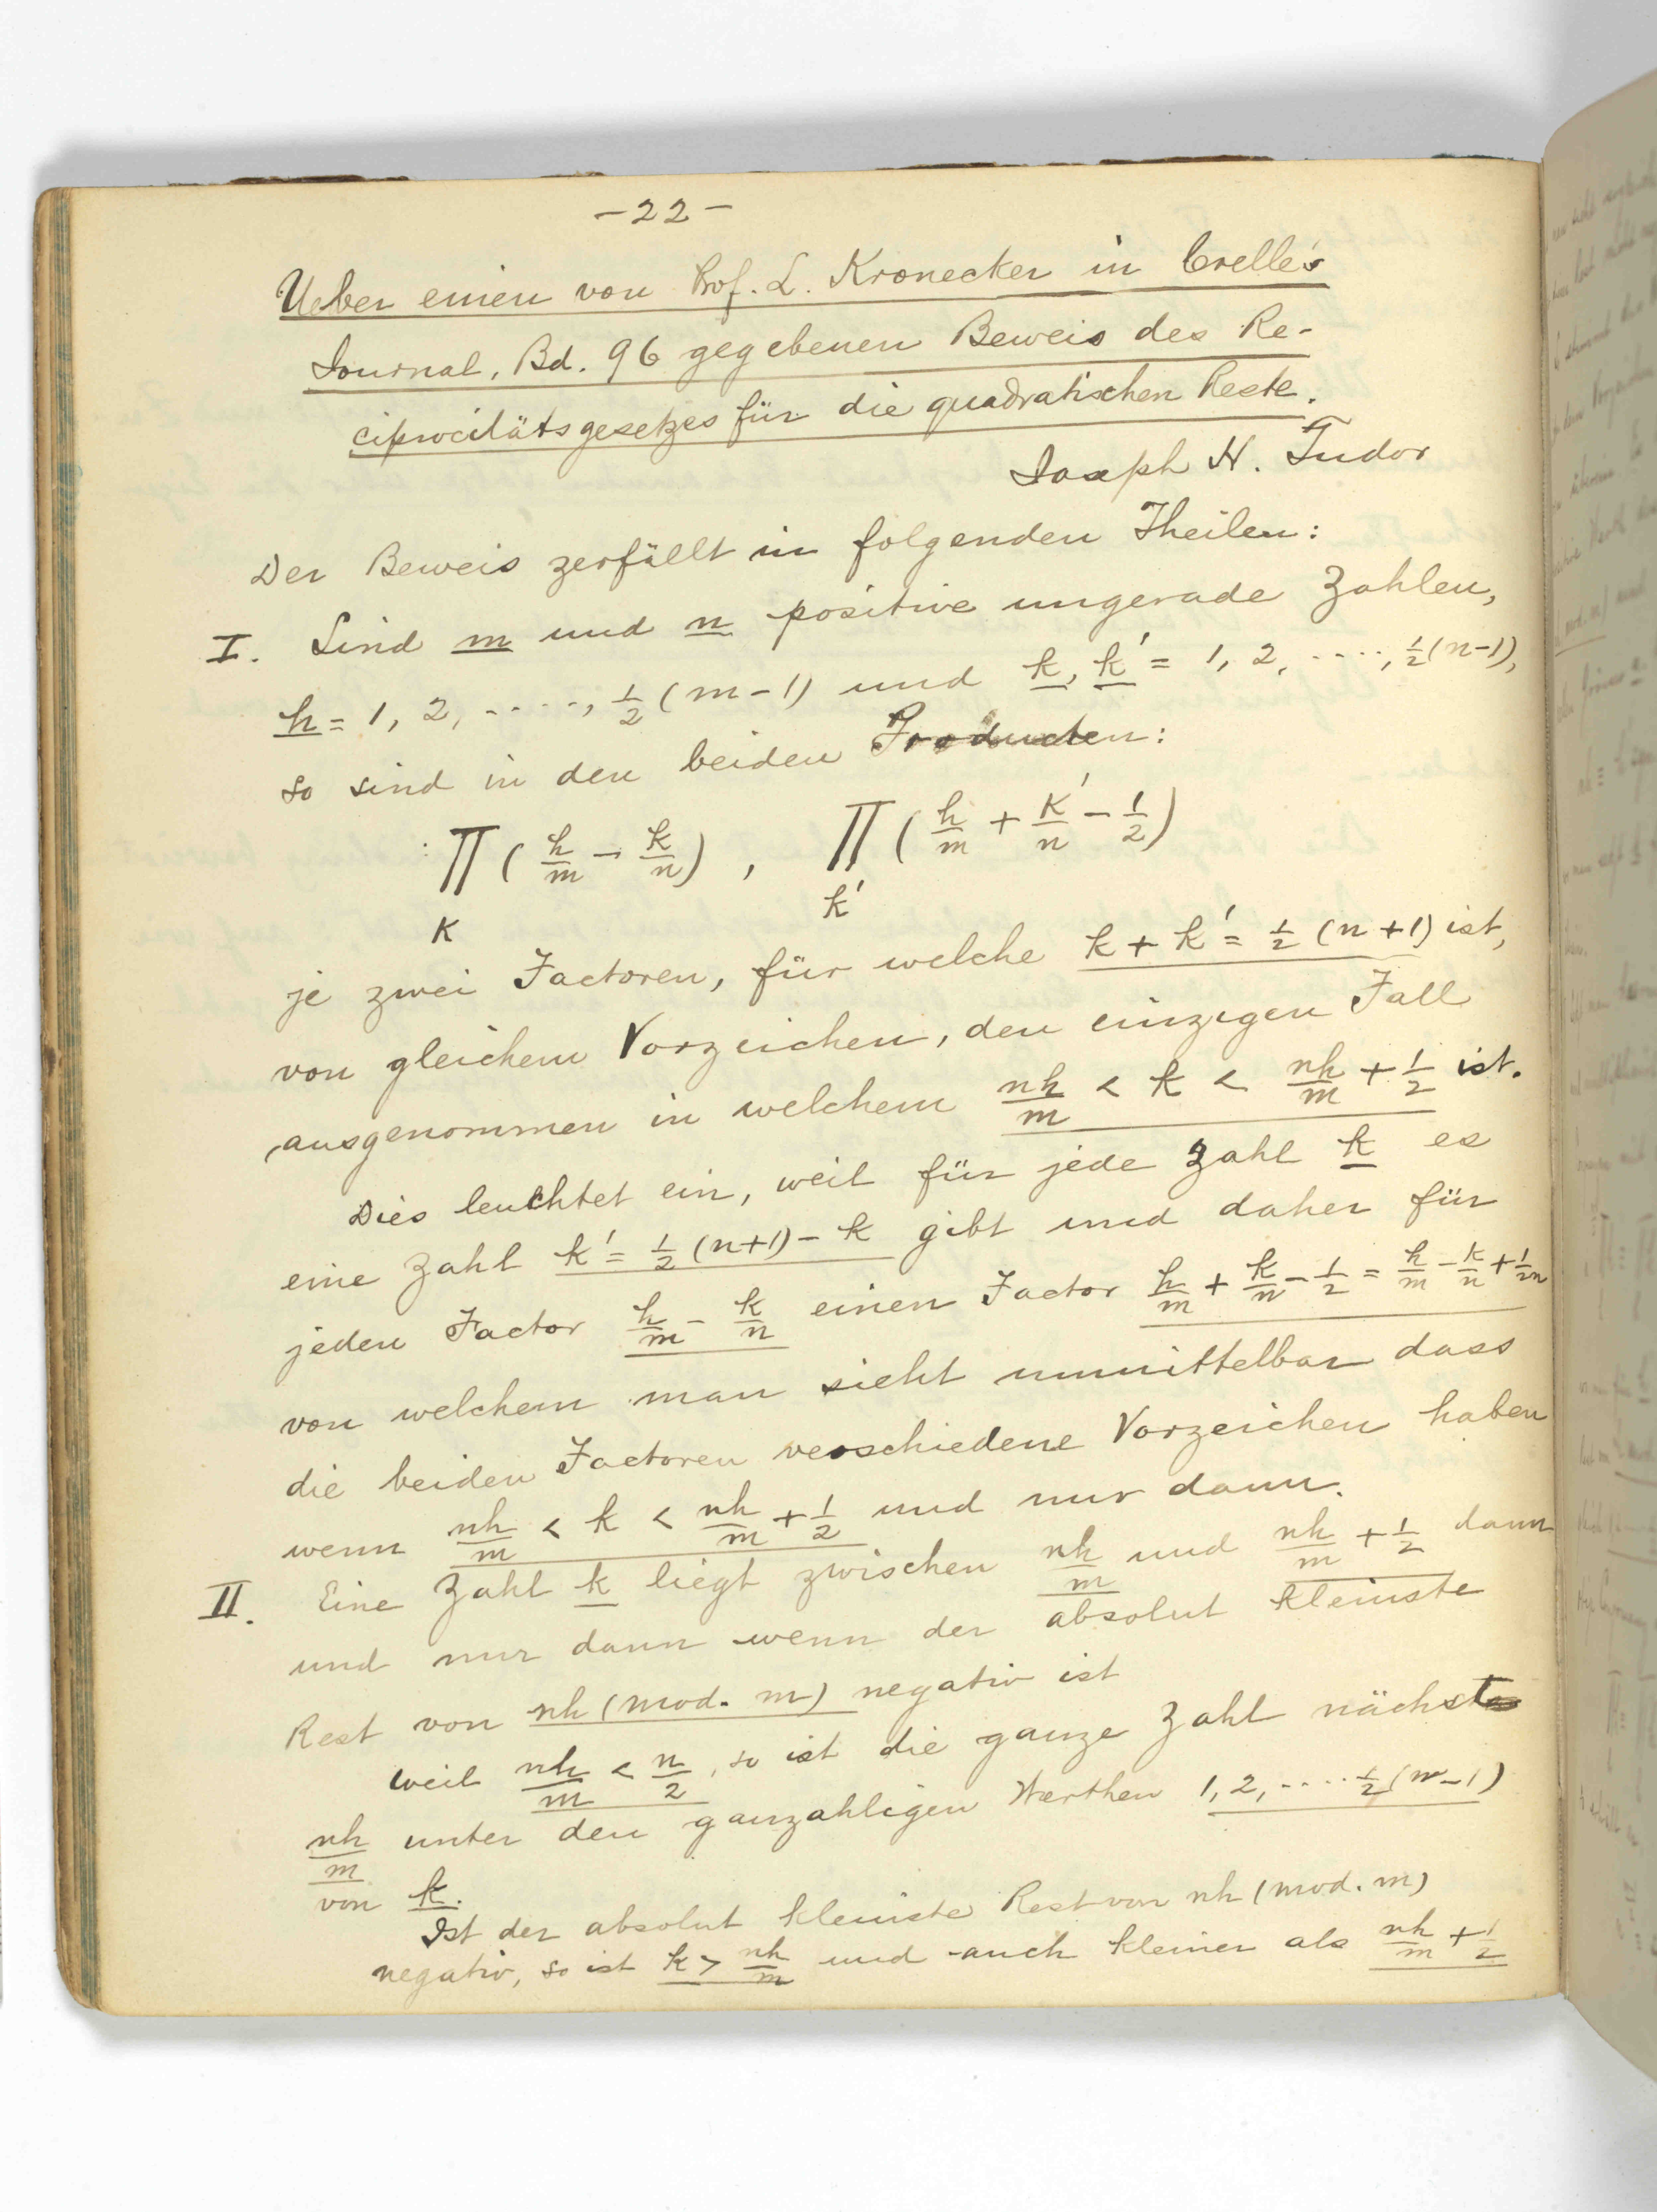 -22-
Ueber einen von Prof. L. Kronecker in Crelle's
Journal, Bd. 96 gegebenen Beweis des Re-
ciprocitätsgesetzes für die quadratischen Reste.
Joseph H. Tudor
Der Beweis zerfällt in folgenden Theilen:
I. Sind m und n positive ungerade Zahlen,
h = 1, 2, ....., ½(m-1) und k, k' = 1, 2, ...., ½(n-1),
so sind in den beiden Producten:
∏ (h/m - k/n) , ∏ (h/m + k'/n - 1/2)
k k'
je zwei Factoren, für welche k + k' = ½(n+1) ist,
von gleichem Vorzeichen, den einzigen Fall
ausgenommen in welchem nh/m < k < nh/m + 1/2 ist.
Dies leuchtet ein, weil für jede Zahl k es
eine Zahl k' = ½(n+1) - k gibt und daher für
jeden Factor h/m - k/n einen Factor h/m + k/n - 1/2 = h/m - k/n + 1/2n
von welchem man sieht unmittelbar dass
die beiden Factoren verschiedene Vorzeichen haben
wenn nh/m < k < nh/m + 1/2 und nur dann.
II. Eine Zahl k liegt zwischen nh/m und nh/m + 1/2 dann
und nur dann wenn der absolut kleinste
Rest von nh (mod. m) negativ ist
Weil nh/m < n/2, so ist die ganze Zahl nächst
nh/m unter den ganzahligen Werthen 1, 2, ..... ½(n-1)
von k.
Ist der absolut kleinste Rest von nh (mod. m)
negativ, so ist k > nh/m und auch kleiner als nh/m + 1/2